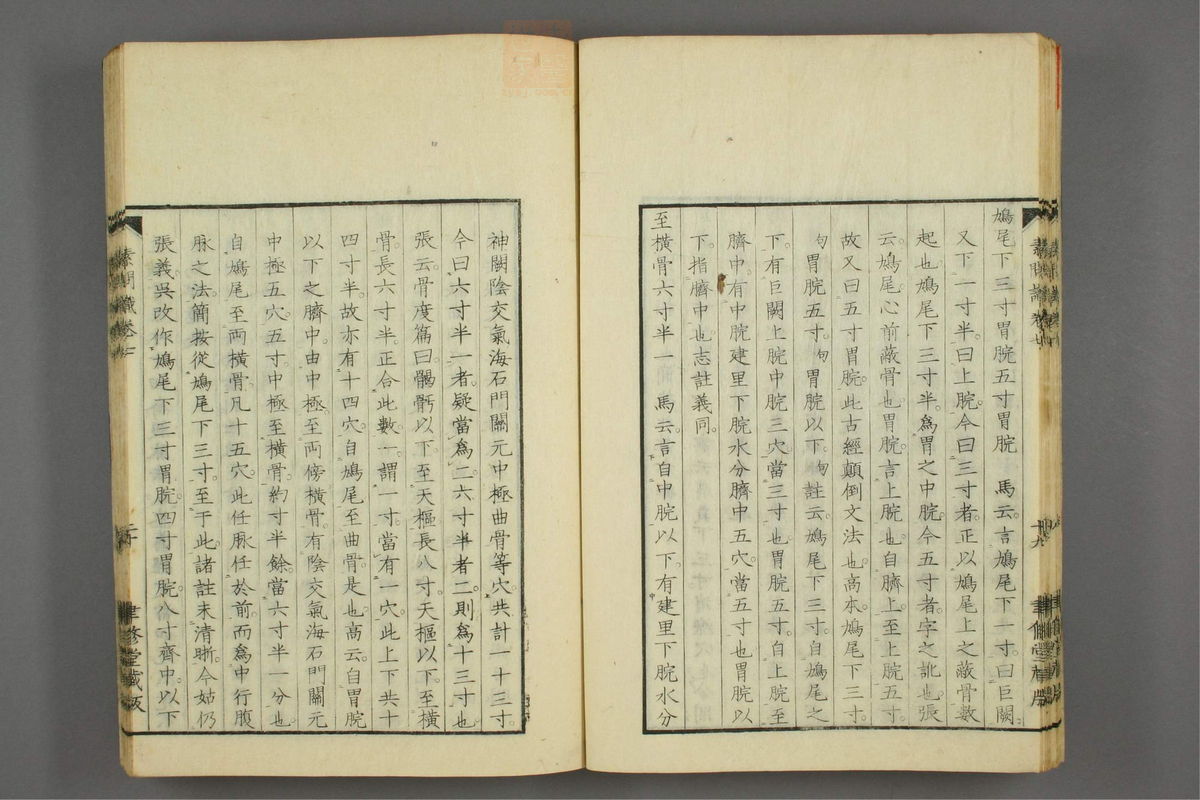 鳩尾下三寸胃脘五寸胃脘　馬云言鳩尾下一寸曰巨闕
又下一寸半曰上脘今曰三寸者正以鳩尾上之蔽骨數
起也鳩尾下三寸半爲胃之中脘今五寸者字之訛也張
云鳩尾心前蔽骨也胃脘言上脘也自臍上至上脘五寸
故又曰五寸胃脘此古經顛倒文法也高本鳩尾下三寸
句胃脘五寸句胃脘以下句註云鳩尾下三寸自鳩尾之
下有巨闕上脘中脘三穴當三寸也胃脘五寸自上脘至
臍中有中脘建里下脘水分臍中五穴當五寸也胃脘以
下指臍中也志註義同
至橫骨六寸半一　馬云言自中脘以下有建里下脘水分
神闕陰交氣海石門關元中極曲骨等穴共計一十三寸
今曰六寸半一者疑當爲二六寸半者二則爲十三寸也
張云骨度篇曰𩩲骬以下至天樞長八寸天樞以下至橫
骨長六寸半正合此數一謂一寸當有一穴此上下共十
四寸半故亦有十四穴自鳩尾至曲骨是也高云自胃脘
以下之臍中由中極至兩傍橫骨有陰交氣海石門關元
中極五穴五寸中極至橫骨約寸半餘當六寸半一分也
自鳩尾至兩橫骨凡十五穴此任脈任於前而爲中行腹
脈之法簡按從鳩尾下三寸至于此諸註未清晣今姑仍
張義吳改作鳩尾下三寸胃脘四寸胃脘八寸齊中以下
素問識卷七
二十
聿修堂藏板